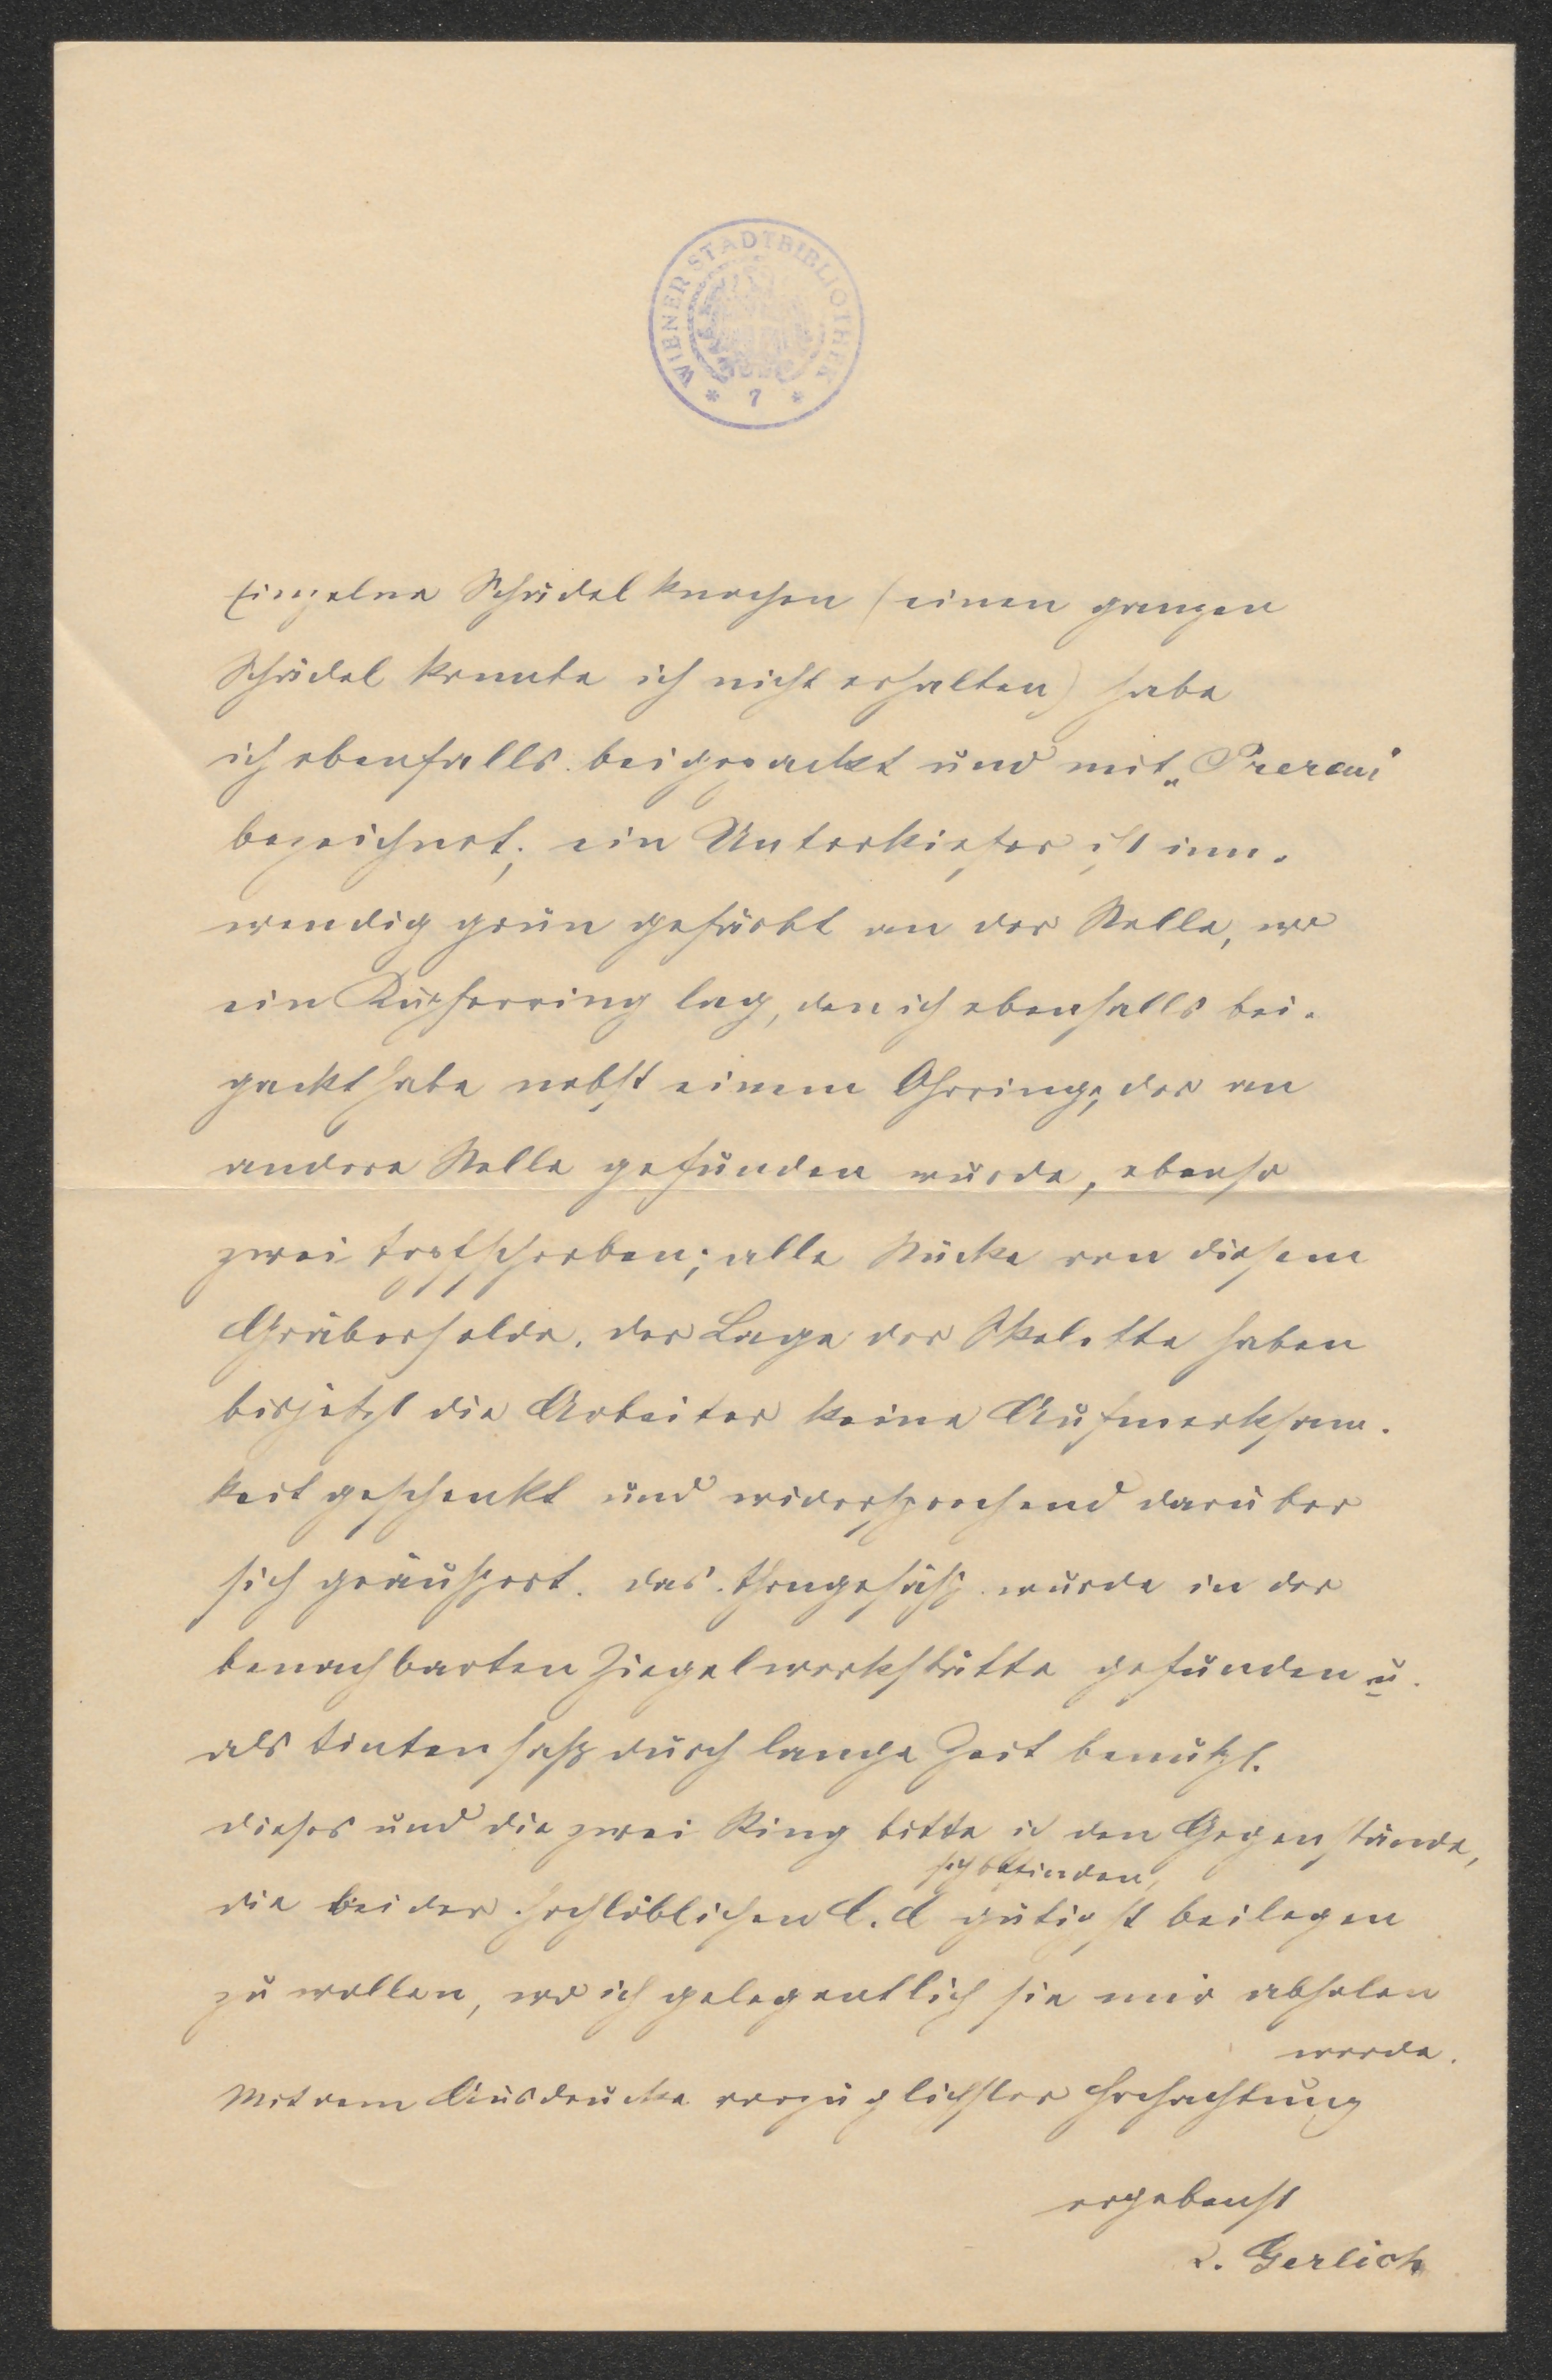 WIENER STADTBIBLIOTHEK
* 7 *
Einzelne Schädelknochen (einen ganzen
Schädel konnte ich nicht erhalten) habe
ich ebenfalls beigepackt und mit „Prerau“
bezeichnet; ein Unterkiefer ist inn-
wendig grün gefärbt an der Stelle, wo
ein Kupferring lag, den ich ebenfalls bei-
packt habe nebst einem Ohrringe, der an
andere Stelle gefunden wurde, ebenso
zwei Topfscherben; alle Stücke von diesem
Gräberfelde. Der Lage der Skelette haben
bisjetzt die Arbeiter keine Aufmerksam-
keit geschenkt und widersprechend darüber
sich geäußert. Das Thongefäß wurde in der
benachbarten Ziegelwerkstätte gefunden u.
als Tintenfaß durch lange Zeit benützt.
Dieses und die zwei Ring bitte ich den Gegenstände,
sich befinden,
die bei der hochlöblichen C. C gütigst beilegen
zu wollen, wo ich gelegentlich sie mir abholen
werde.
Mit dem Ausdrucke vorzüglichster Hochachtung
ergebenst
Gerlich